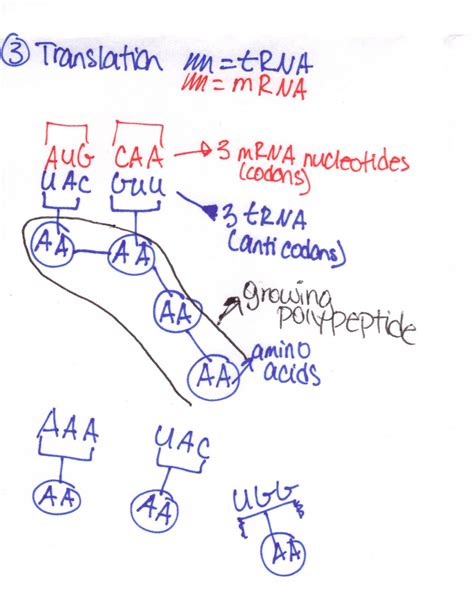 ③ Translation = tRNA
= mRNA
AUG CAA → 3 mRNA nucleotides
(codons)
UAC GUU
3 tRNA
(anti codons)
AA AA
growing
polypeptide
AA
amino
acids
AA
AAA UAC
AA AA
UGG
AA